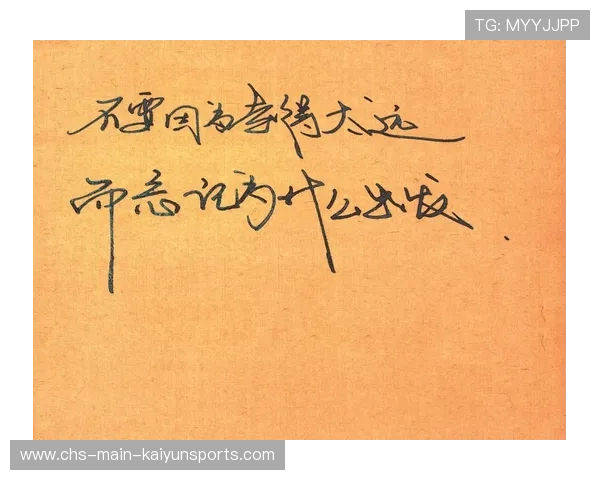 TG: MYYJJPP
不要因为走得太远
而忘记为什么出发.
www.chs-main-kaiyunsports.com